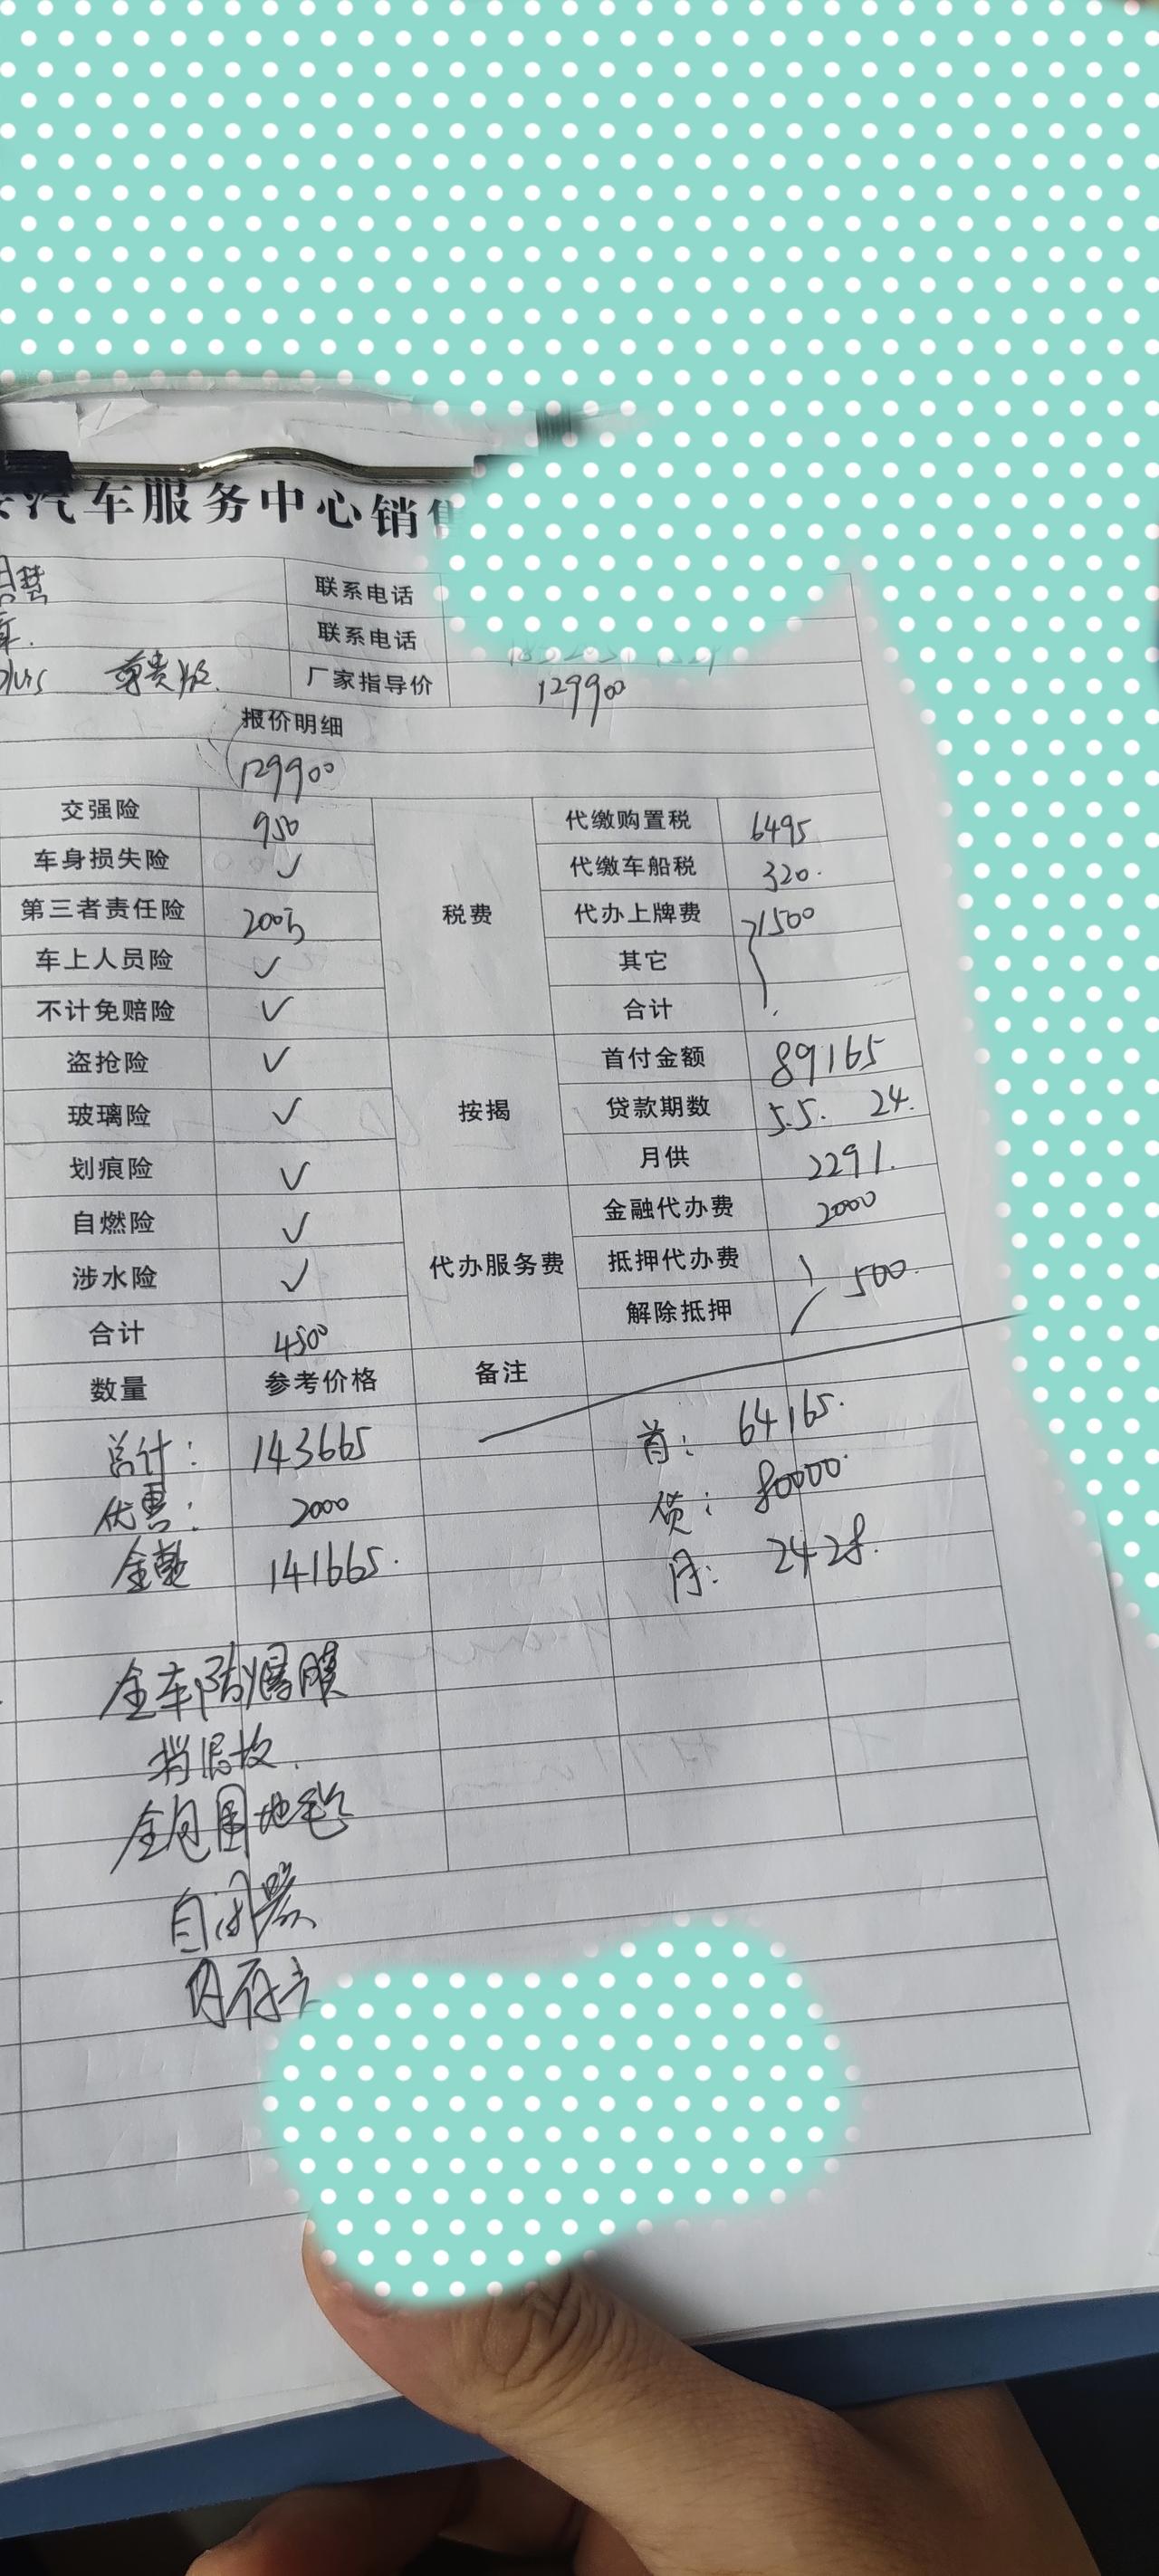 汽车服务中心销售
联系电话
联系电话
plus 尊贵版 厂家指导价 129900
报价明细
129900
交强险 950 税费 代缴购置税 6495
车身损失险 ✓ 代缴车船税 320.
第三者责任险 200万 代办上牌费 1500
车上人员险 ✓ 其它
不计免赔险 ✓ 合计
盗抢险 ✓ 按揭 首付金额 89165
玻璃险 ✓ 贷款期数 5.5. 24.
划痕险 ✓ 月供 2291.
自燃险 ✓ 代办服务费 金融代办费 2000
涉水险 ✓ 抵押代办费 500.
合计 4500 解除抵押
数量 参考价格 备注
总计: 143665 首: 64165.
优惠: 2000 贷: 80000.
全款 141665. 月: 2428.
全车防爆膜
挡泥板.
全包围地毯
自闭器
内存卡